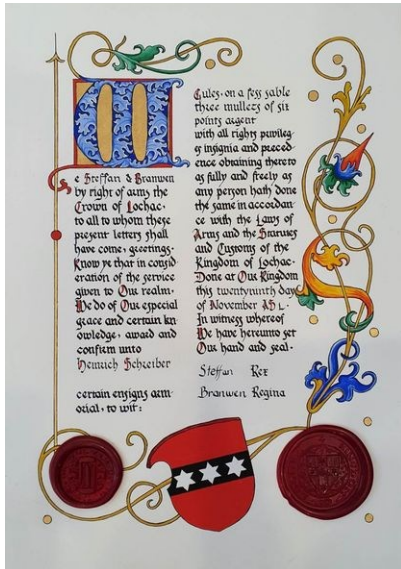 We Steffan & Branwen
by right of arms the
Crown of Lochac,
to all to whom these
present letters shall
have come, greetings.
Know ye that in consid
eration of the service
given to Our realm,
We do of Our especial
grace and certain kn
owledge, award and
confirm unto
Heinrich Schreiber
certain ensigns arm
orial, to wit:
Gules, on a fess sable
three mullets of six
points argent
with all rights privileg
es insignia and preced
ence obtaining thereto
as fully and freely as
any person hath done
the same in accordan
ce with the Laws of
Arms and the Statutes
and Customs of the
Kingdom of Lochac.
Done at Our Kingdom
this twentyninth day
of November AS L.
In witness whereof
We have hereunto set
Our hand and seal.
Steffan Rex
Branwen Regina